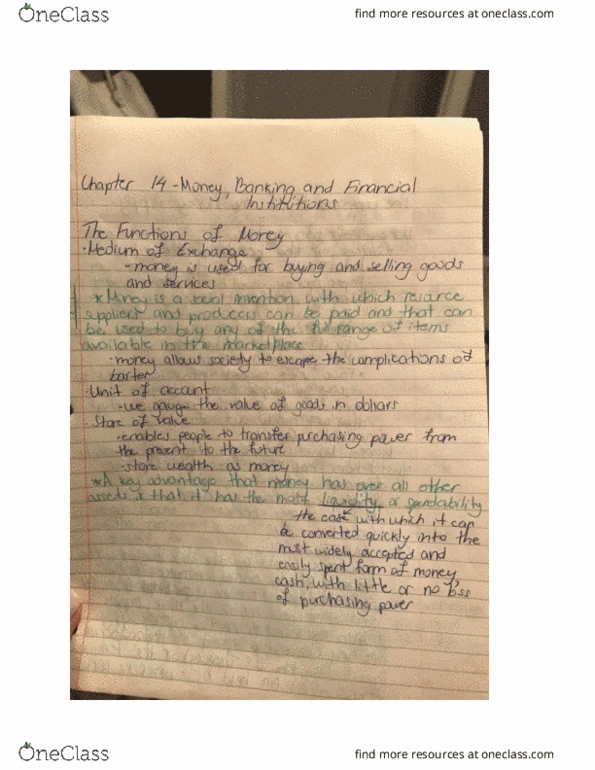 OneClass
find more resources at oneclass.com
Chapter 14 - Money, Banking and Financial
Institutions
The Functions of Money
· Medium of Exchange
- money is used for buying and selling goods
and services
* Money is a social invention with which
suppliers and producers can be paid and that can
be used to buy any of the full range of items
available in the marketplace
· money allows society to escape the complications of
barter
· Unit of account
- we gauge the value of goods in dollars
Store of value
· enables people to transfer purchasing power from
the present to the future
· store wealth as money
* A key advantage that money has over all other
assets is that it has the most liquidity, or spendability
the ease with which it can
be converted quickly into the
most widely accepted and
easily spent form of money,
cash, with little or no loss
of purchasing power
OneClass
find more resources at oneclass.com